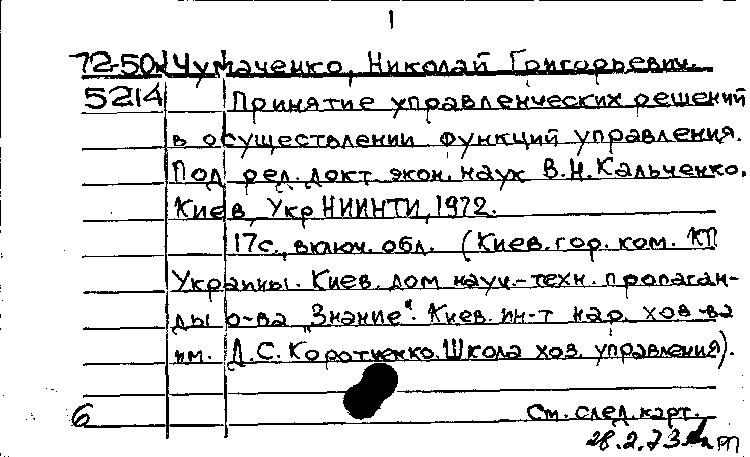 1
72-50
Чумаченко, Николай Григорьевич.
5214
Принятие управленческих решений
в осуществлении функций управления.
Под ред. докт. экон. наук В.Н. Кальченко.
Киев, Укр НИИНТИ, 1972.
17с., включ. обл. (Киев. гор. ком. КП
Украины. Киев. дом науч.-техн. пропаган-
ды о-ва „Знание". Киев. ин-т нар. хоз-ва
им. Д.С. Коротченко. Школа хоз. управления).
6
См. след. карт.
28.2.73